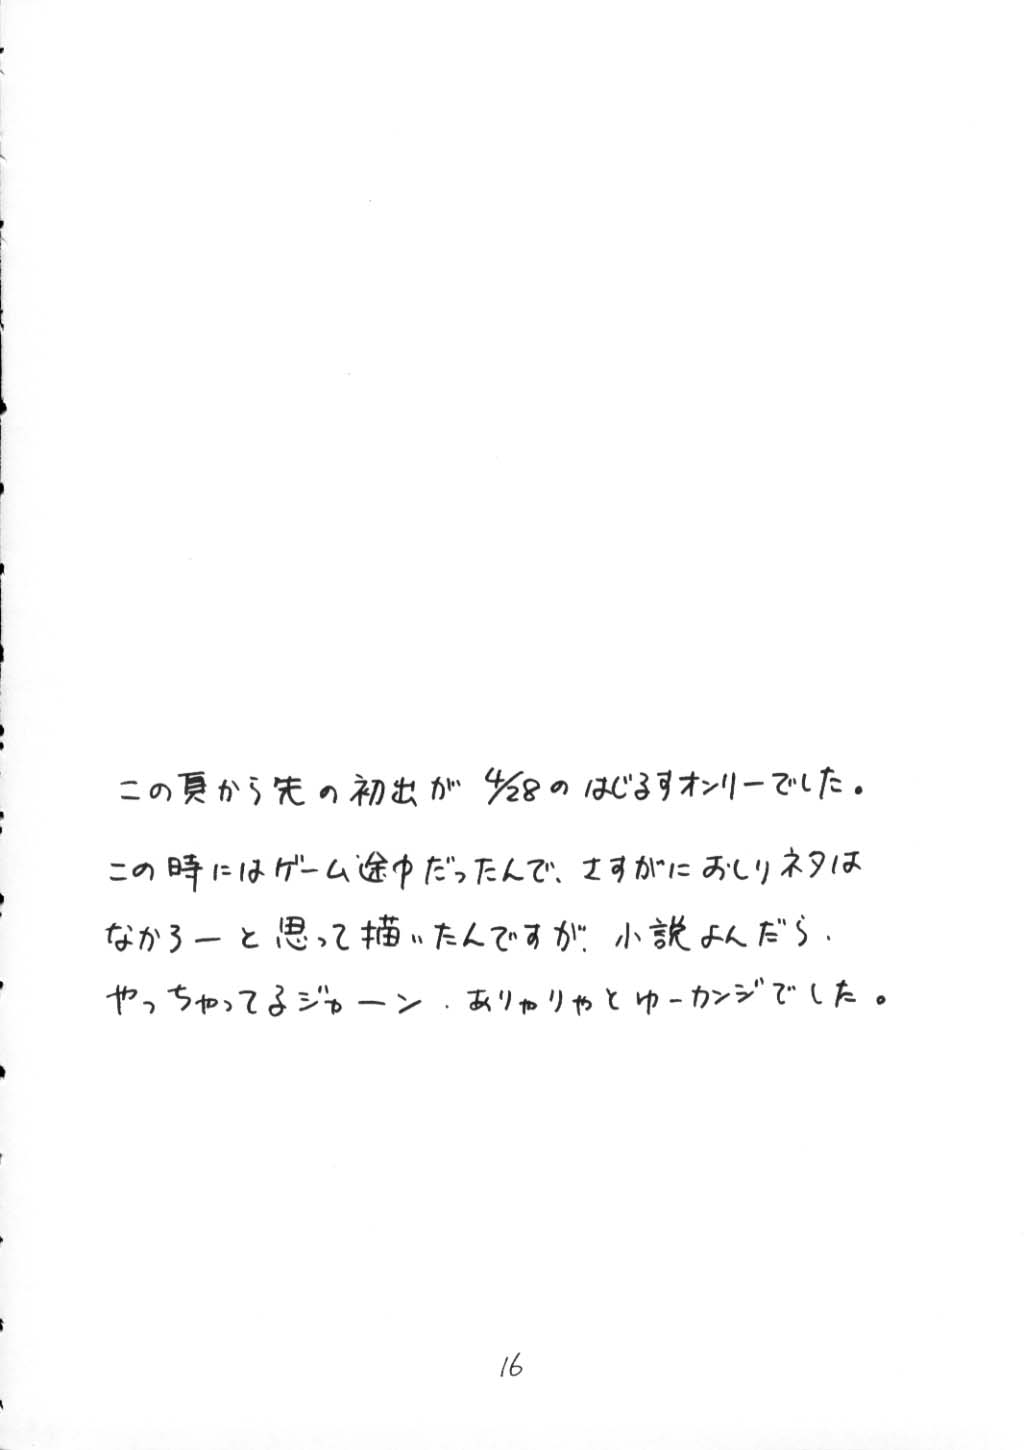 この頁から先の初出が 4/28の はじるすオンリーでした。
この時にはゲーム途中だったんで、さすがにおしりネタは
なかろーと思って描いたんですが、小説よんだら、
やっちゃってるジャーン、ありゃりゃとゆーカンジでした。
16